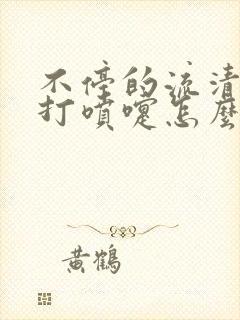 不停的流清
打噴嚏怎麼
黃鶴